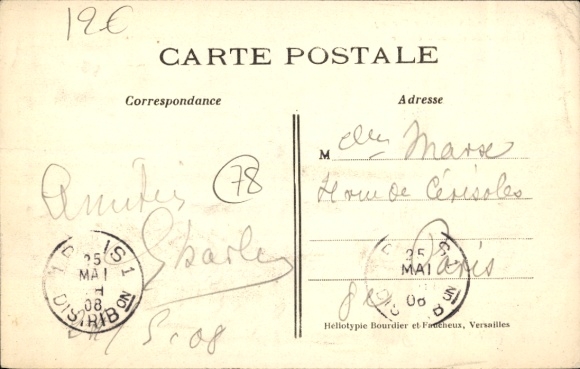 12€
CARTE POSTALE
Correspondance
Adresse
M elle Marse
4 rue de Cérisoles
Paris
8e
Amitiés
78
Charles
5-08
PARIS 1
25
MAI
08
DISTRIBON
PARIS 1
25
MAI
08
DISTRIBON
Héliotypie Bourdier et Faucheux, Versailles